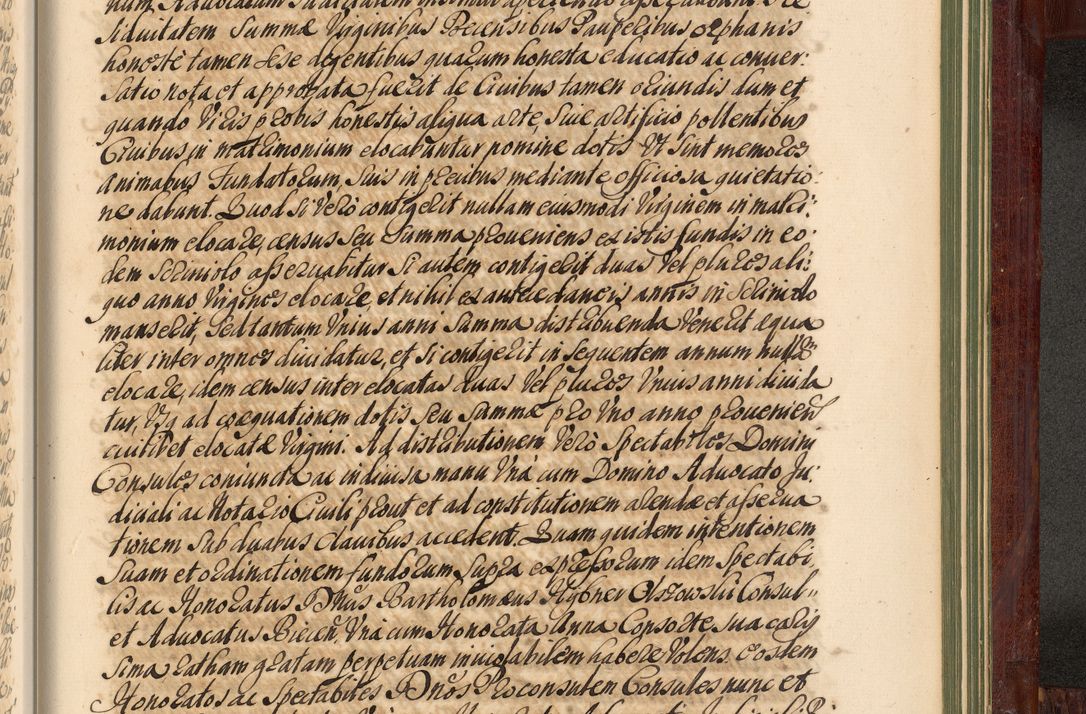 siduitatem Summæ Virginibus Biecensibus Pauperibus orphanis
honestè tamen sese degentibus quarum honesta educatio ac conver:
satio nota et approbata fuerit de Civibus tamen oriundis dum et
quando Viris probis honestis aliqua arte, sive artificio pollentibus
Civibus in matrimonium elocabuntur nomine dotis Vt sint memores
animabus Fundatorum, suis in precibus mediante officiosa quietatio:
ne dabunt. Quod si verò contigerit nullam eiusmodi Virginem in matri:
monium elocare, census seu summa proveniens ex istis fundis in eo:
dem scriniolo asservabitur si autem contigerit duas vel plures ali:
quo anno Virgines elocare, et nihil ex antecedaneis annis in scriniolo
manserit, sed tantum Vnius anni summa distribuenda venerit æqua
liter inter omnes dividatur, et si contigerit in sequentem annum nullas
elocare, idem census inter elocatas duas vel plures Vnius anni divida
tur, Vsq ad coæquationem dotis seu summæ pro Vno anno provenient
cuilibet elocatæ Virgini. Ad distributionem verò Spectabiles Domini
Consules coniuncta ac indivisa manu Vnà cum Domino Advocato Ju:
diciali ac Notario Civili prout et ad constitutionem arendæ et asserva
tionem sub duabus clavibus accedent. Quam quidem intentionem
suam et ordinationem fundorum supra expressorum idem Spectabi
lis ac Honoratus Dnus Bartholomæus Hybner Olszowski Consul
et Advocatus Biecen, Vnà cum Honorata Anna Consorte sua caris
sima ratham gratam perpetuam inviolabilem habere Volens. eosdem
Honoratos ac Spectabiles Dnos Proconsulem Consules nunc et